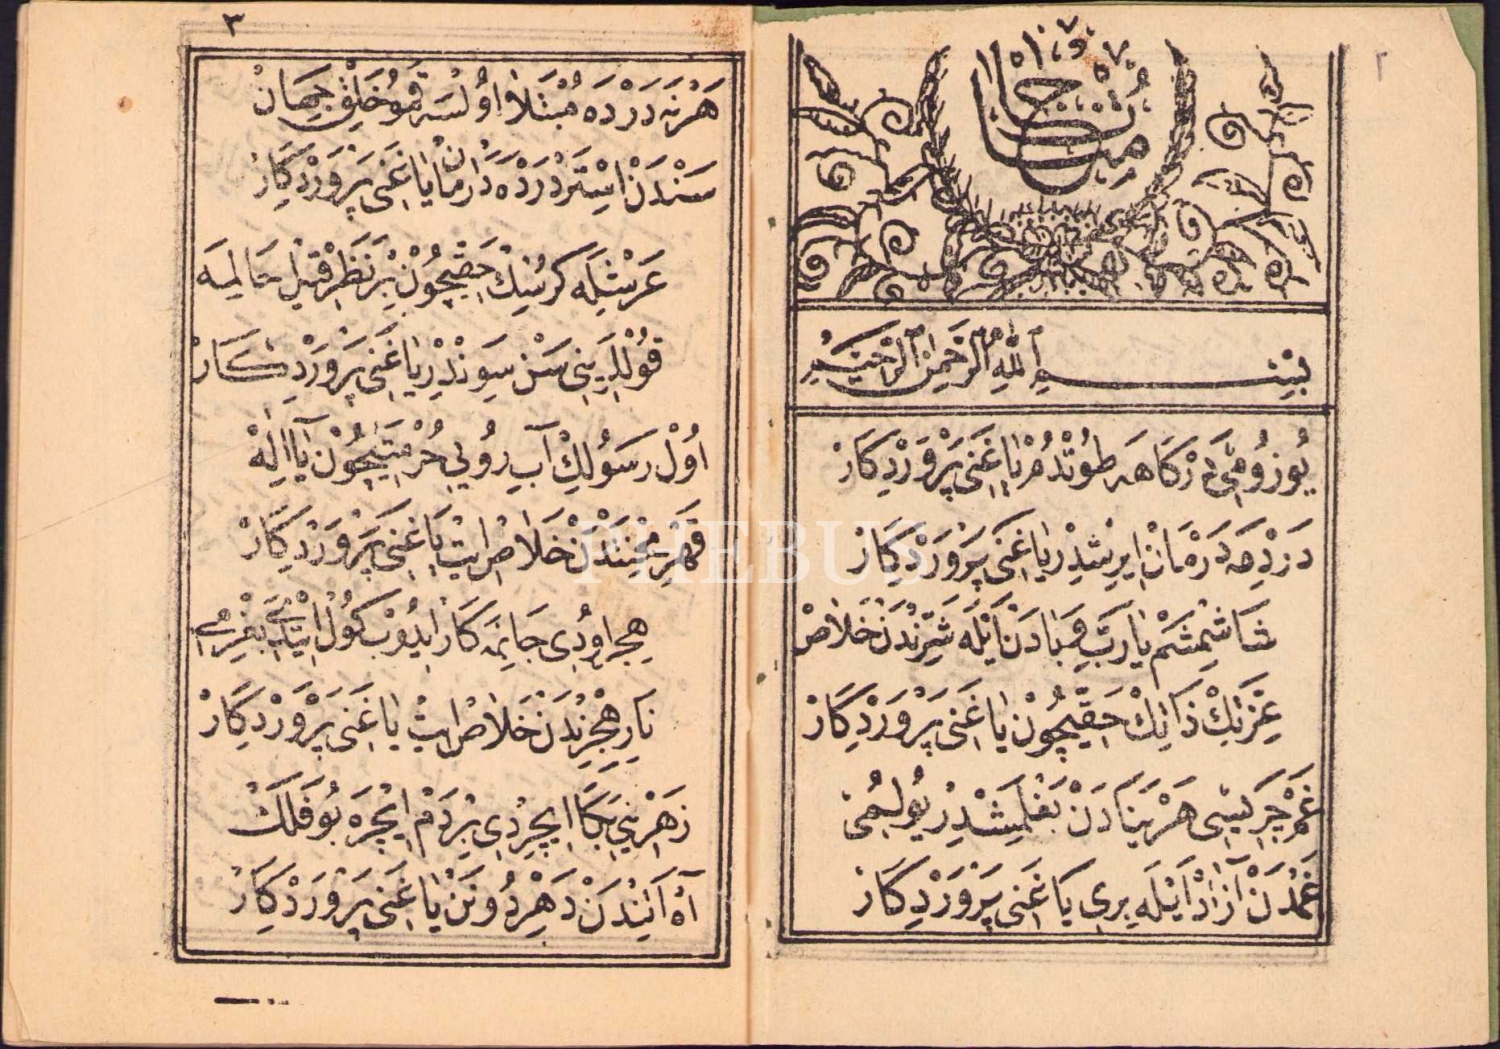 ٢
مناجات
بِسْمِ اللّٰهِ الرَّحْمٰنِ الرَّحِيمِ
يُوزُومِى دَرْكَاهَه طُوتْدُمْ يَا غَنِى پَرْوَرْدِكَارْ
دَرْدِمَه دَرْمَانْ اِيرِشْدِرْ يَا غَنِى پَرْوَرْدِكَارْ
شَاشِمِشَمْ يَارَبْ دَنْ اَيْلَه شَرِّنْدَنْ خَلَاصْ
عِزَّتِكْ ذَاتِكْ حَقِّيچُونْ يَا غَنِى پَرْوَرْدِكَارْ
هَرْ يَنَادَنْ بَغْلَمِشْدِرْ يُولِمِى
غَمْدَنْ اٰزَادْ اَيْلَه يَا غَنِى پَرْوَرْدِكَارْ
٣
هَرْنَه دَرْدَه مُبْتَلَا اُولْسَه قَمُو خَلْقِ جِهَانْ
سَنْدَنْ اِسْتَرْ دَرْدَه دَرْمَانْ يَا غَنِى پَرْوَرْدِكَارْ
عَرْشِلَه كُرْسِيْنِكْ حَقِّيچُونْ بِرْ نَظَرْ قِيلْ حَالِمَه
قُولْلَرِينِى سَنْ سَوِنْدِرْ يَا غَنِى پَرْوَرْدِكَارْ
اُولْ رَسُولِكْ آبِ رُويِى حُرْمَتِيچُونْ يَا اِلٰهْ
قَهْرِ مِحْنَتْدَنْ خَلَاصْ اِيتْ يَا غَنِى پَرْوَرْدِكَارْ
هِجْرْ اودِى جَانِمَه كَارْ اِيدُوبْ كُولْ اِيتْدِى بَغْرِمِى
نَارِ هِجْرِنْدَنْ خَلَاصْ اِيتْ يَا غَنِى پَرْوَرْدِكَارْ
زَهْرِينِى بَكَا اِيچِرْدِى بِرْدَمْ اِيچْرَه بُو فَلَكْ
آه اَلِنْدَنْ دَهْرِ دُونِنْ يَا غَنِى پَرْوَرْدِكَارْ
PHEBUS